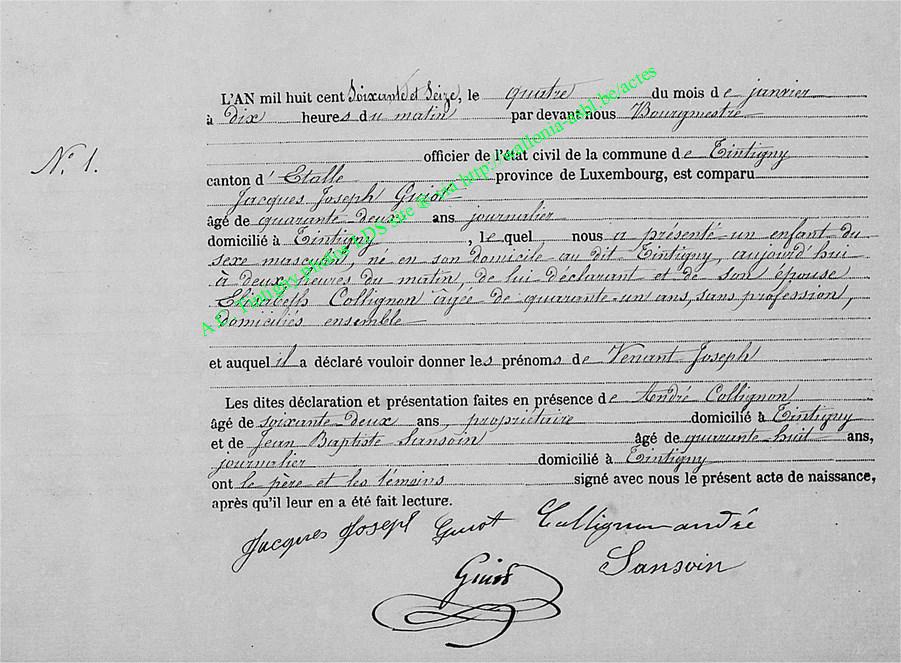 L'AN mil huit cent Soixante et Seize, le quatre du mois de janvier
à dix heures du matin par devant nous Bourgmestre
N.º 1.
officier de l'état civil de la commune de Tintigny
canton d' Etalle province de Luxembourg, est comparu
Jacques Joseph Guiot
âgé de quarante deux ans journalier
domicilié à Tintigny, lequel nous a présenté un enfant du
sexe masculin, né en son domicile au dit Tintigny, aujourd'hui
à deux heures du matin, de lui déclarant et de son épouse
Elisabeth Collignon âgée de quarante-un ans, sans profession,
domiciliés ensemble
et auquel il a déclaré vouloir donner les prénoms de Joseph
Les dites déclaration et présentation faites en présence de André Collignon
âgé de soixante deux ans, propriétaire domicilié à Tintigny
et de Jean Baptiste Sansoin âgé de quarante-huit ans,
journalier domicilié à Tintigny
ont le père et les témoins signé avec nous le présent acte de naissance,
après qu'il leur en a été fait lecture.
Jacques Joseph Guiot Collignon andré
Sansoin
Guiot
via http://wallonia-asbl.be/actes